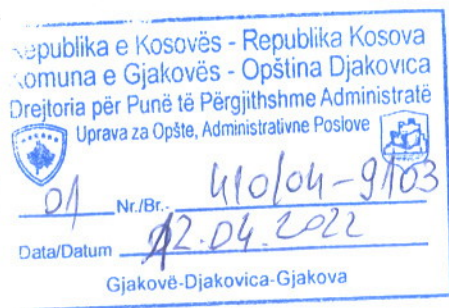 epublika e Kosovës - Republika Kosova
omuna e Gjakovës - Opština Djakovica
Drejtoria për Punë të Përgjithshme Administratë
Uprava za Opšte, Administrativne Poslove
01 Nr./Br.- 410/04-9103
Data/Datum 12.04.2022
Gjakovë-Djakovica-Gjakova